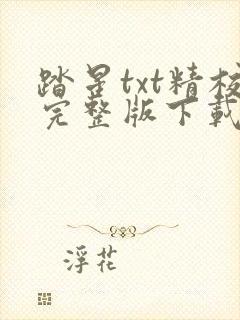 踏星txt精校
完整版下载
浮花